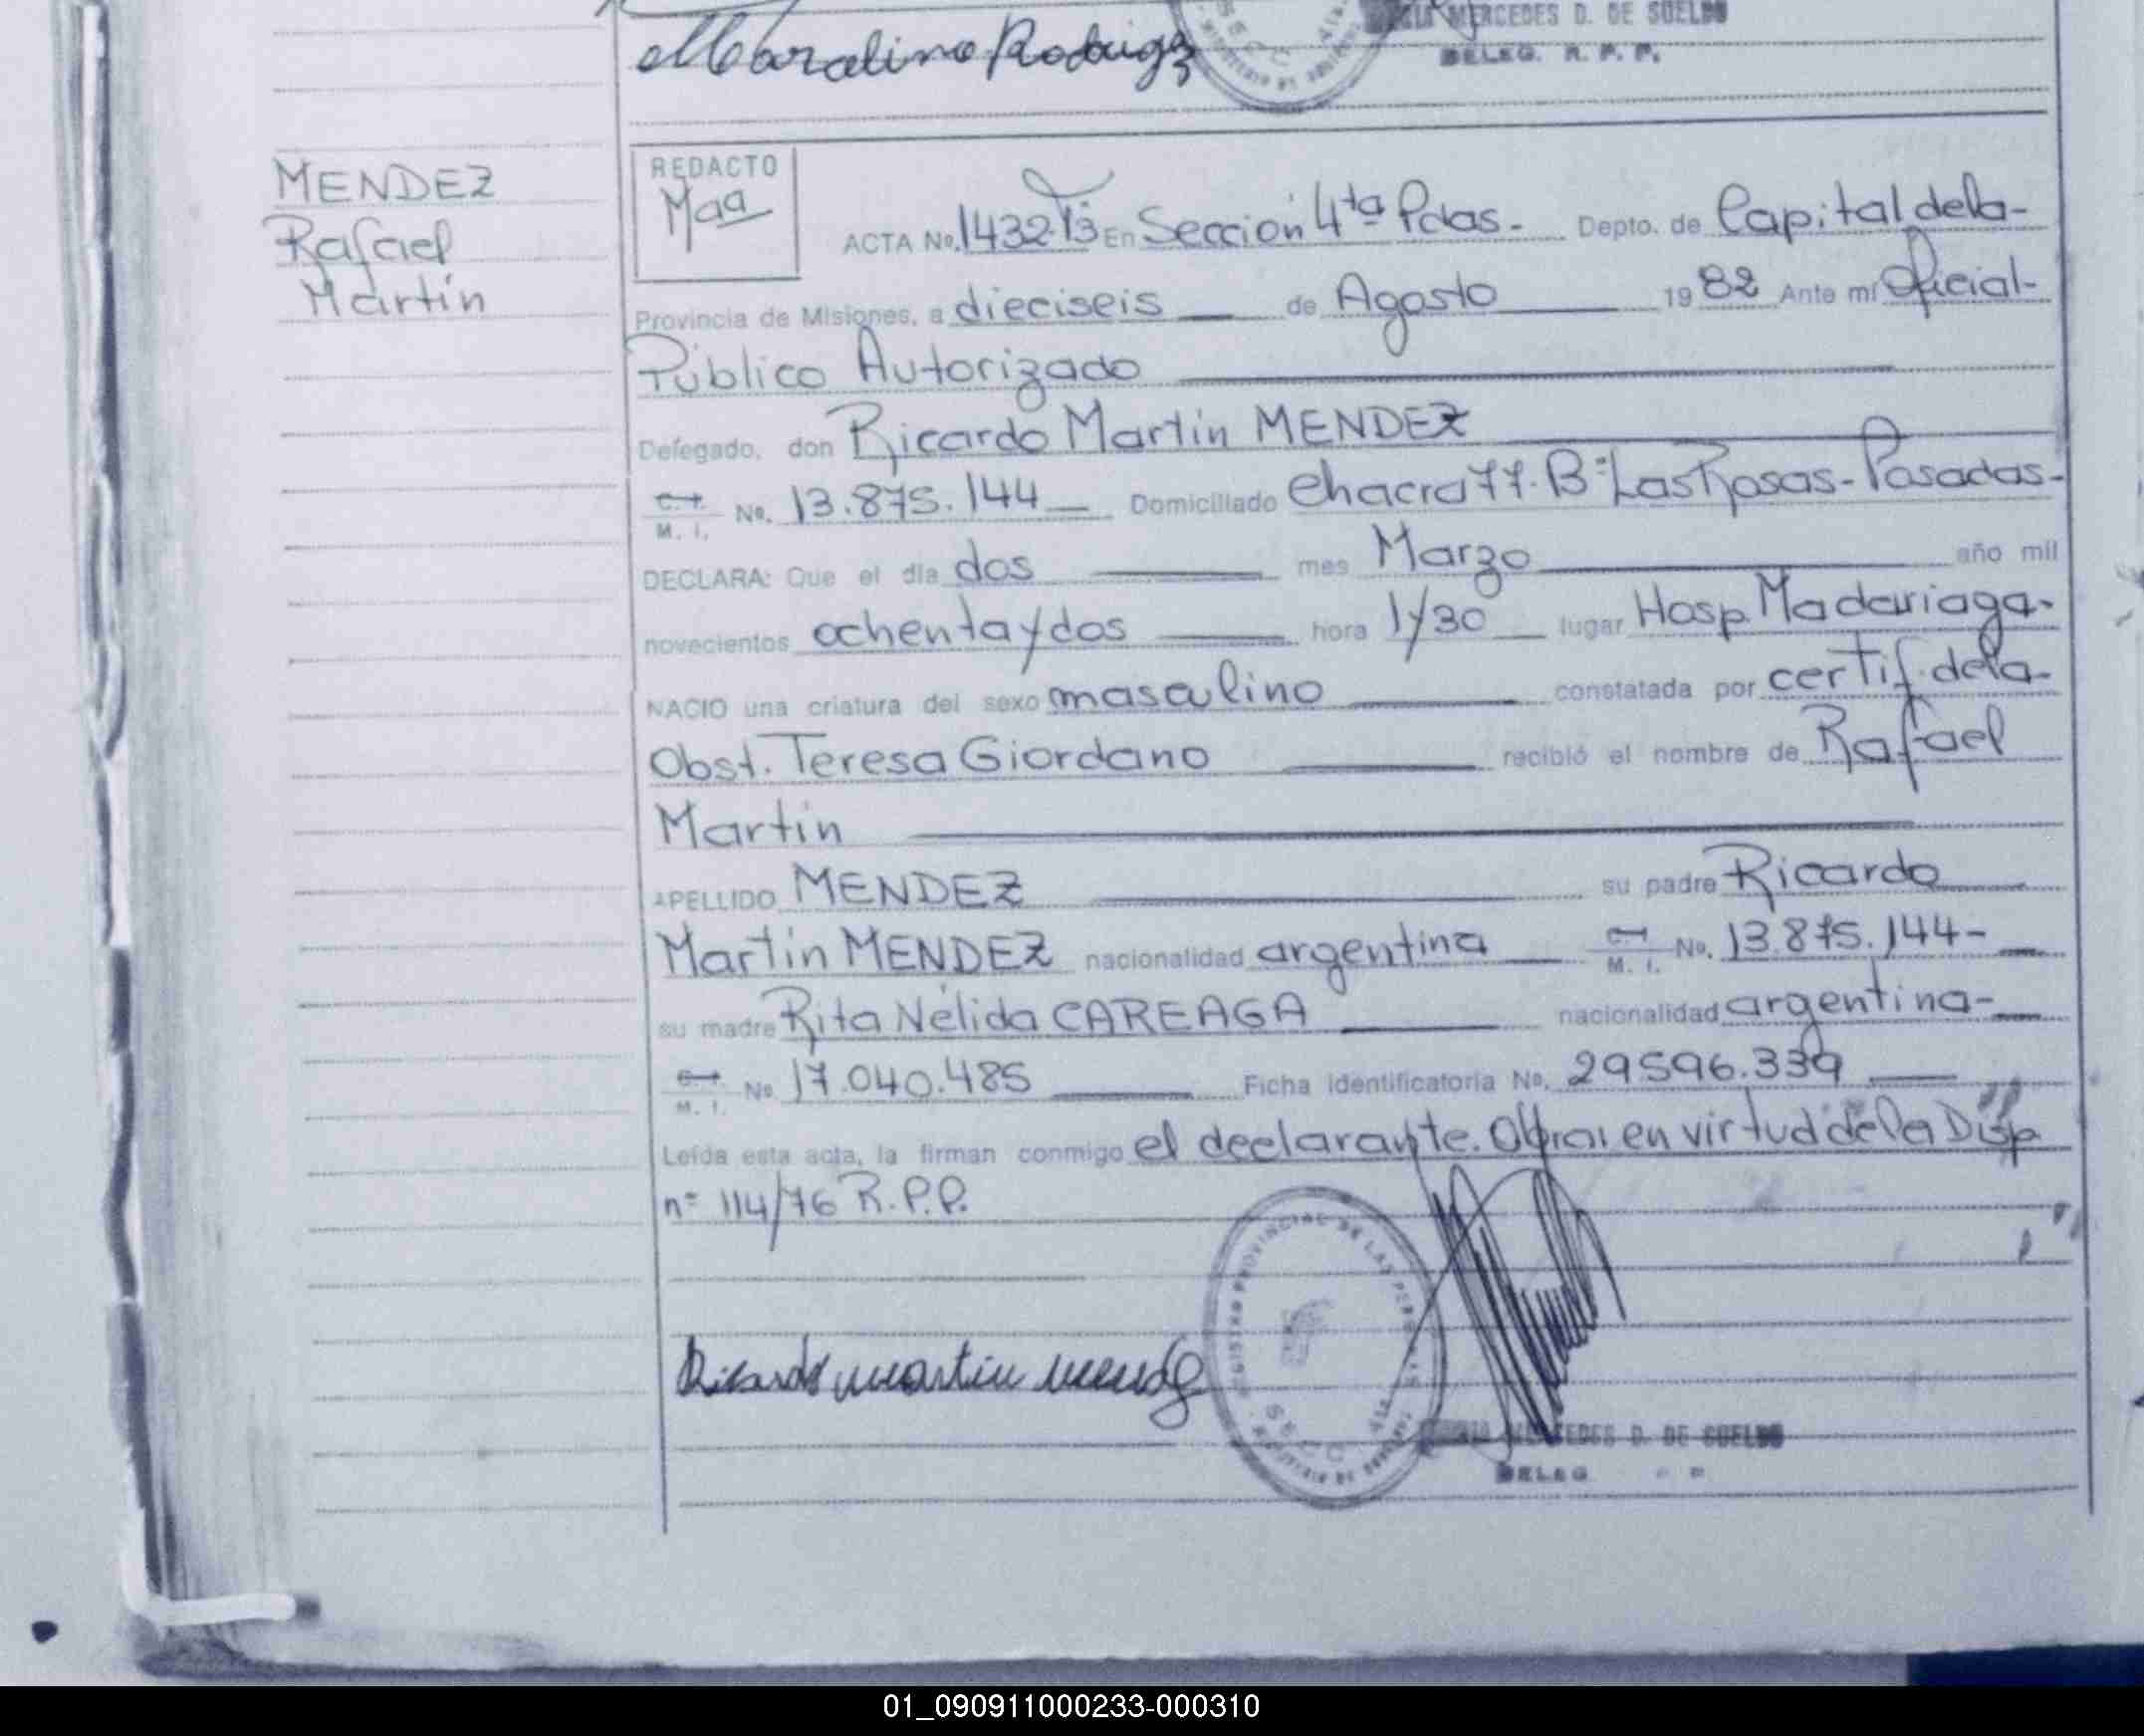 Marcelino Rodrigz
MERCEDES D. DE SUELDO
DELEG. R. P. P.
MENDEZ
Rafael
Martín
REDACTO
Maa
ACTA No. 1432 T3 En Sección 4ta Pdas.- Depto. de Capital de la-
Provincia de Misiones, a dieciseis de Agosto 1982 Ante mí Oficial-
Público Autorizado
Delegado, don Ricardo Martín MENDEZ
C. I. M. I. No. 13.875.144 Domiciliado Chacra 77. Bº Las Rosas - Posadas-
DECLARA: Que el día dos mes Marzo año mil
novecientos ochenta y dos hora 1y30 lugar Hosp. Madariaga-
NACIO una criatura del sexo masculino constatada por certif. de la-
Obst. Teresa Giordano recibió el nombre de Rafael
Martín
APELLIDO MENDEZ su padre Ricardo
Martín MENDEZ nacionalidad argentina C. I. M. I. No. 13.875.144-
su madre Rita Nélida CAREAGA nacionalidad argentina-
C. I. M. I. No 17.040.485 Ficha identificatoria No. 29596.339
Leída esta acta, la firman conmigo el declarante. Obrai en virtud de la Disp
nº 114/76 R.P.P.
Ricardo Martin Mendez
REGISTRO PROVINCIAL DE LAS PERSONAS
SECC. 4ta
MERCEDES D. DE SUELDO
DELEG
01_090911000233-000310